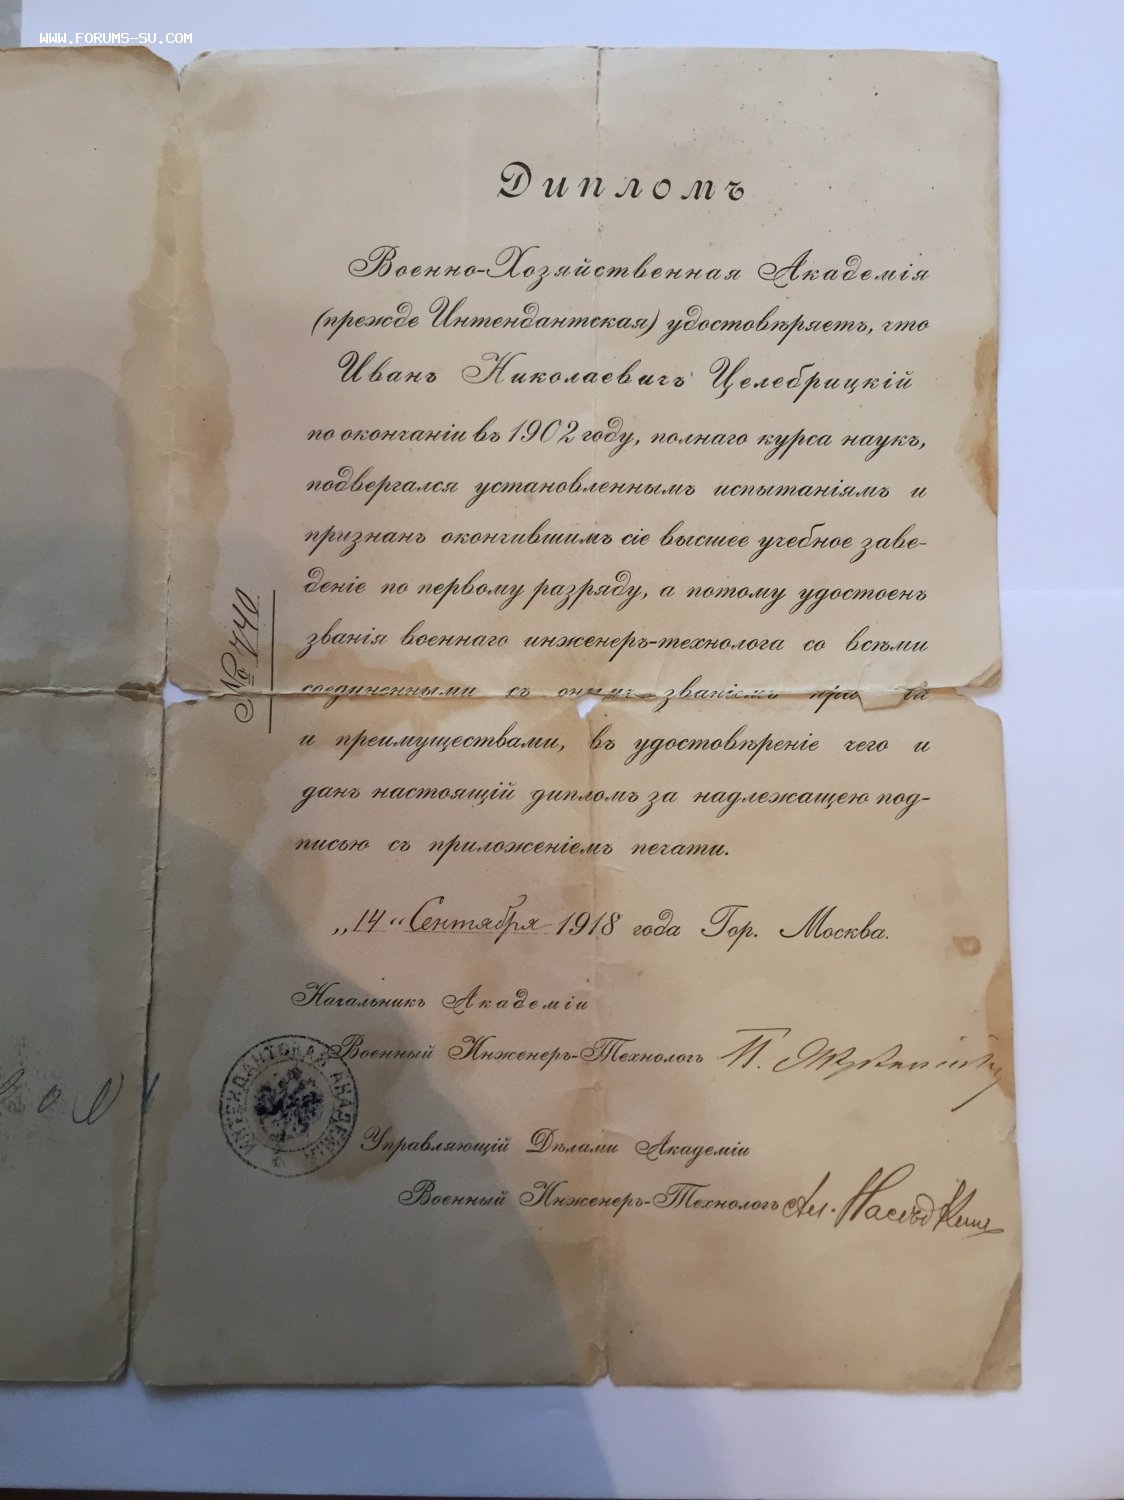 WWW.FORUMS-SU.COM
Дипломъ
Военно-Хозяйственная Академія
(прежде Интендантская) удостовѣряетъ, что
Иванъ Николаевичъ Целебрицкій
по окончаніи въ 1902 году, полнаго курса наукъ,
подвергался установленнымъ испытаніямъ и
признанъ окончившимъ сіе высшее учебное заве-
деніе по первому разряду, а потому удостоенъ
званія военнаго инженеръ-технолога со всѣми
соединенными съ онымъ званіемъ
и преимуществами, въ удостовѣреніе чего и
данъ настоящій дипломъ за надлежащею под-
писью съ приложеніемъ печати.
№ 740
„14“ Сентября 1918 года Гор. Москва.
Начальникъ Академіи
Военный Инженеръ-Технологъ П.
ИНТЕНДАНТСКАЯ АКАДЕМІЯ
Управляющій Дѣлами Академіи
Военный Инженеръ-Технологъ Ал.